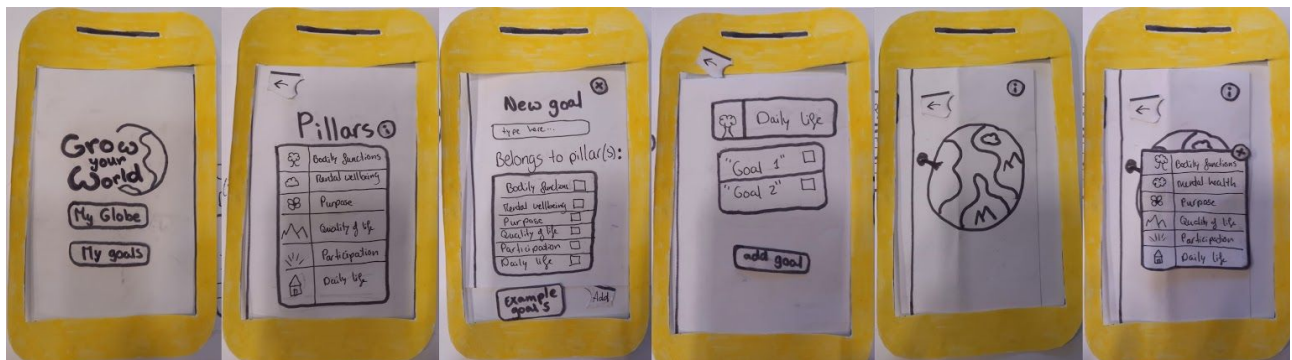 Grow
your
World
My Globe
My goals
Pillars i
Bodily functions
Mental wellbeing
Purpose
Quality of life
Participation
Daily life
New goal
type here...
Belongs to pillar(s):
Bodily functions
Mental wellbeing
Purpose
Quality of life
Participation
Daily life
Example
goals
Add
Daily life
"Goal 1"
"Goal 2"
add goal
i
i
Bodily functions
mental health
Purpose
Quality of life
Participation
Daily life